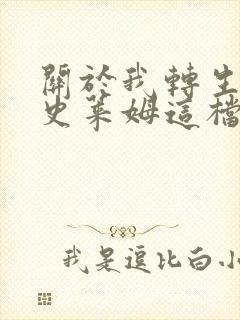 關於我轉生
史萊姆這檔
我是逗比白小